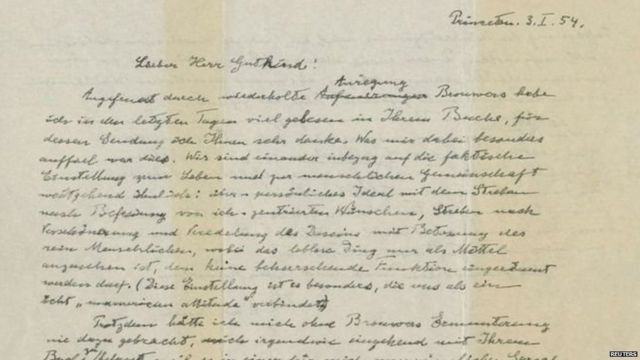 Princeton. 3. I. 54.
Lieber Herr Gutkind!
Anregung
Angefeuert durch wiederholte Brouwers habe
ich in den letzten Tagen viel gelesen in Ihrem Buche, für
dessen Sendung ich Ihnen sehr danke. Was mir dabei besonders
auffiel war dies. Wir sind einander inbezug auf die faktische
Einstellung zum Leben und zur menschlichen Gemeinschaft
weitgehend ähnlich: über-persönliches Ideal mit dem Streben
nach Befreiung von ich-zentrierten Wünschen, Streben nach
Verschönerung und Veredelung des Daseins mit Betonung des
rein Menschlichen, wobei das leblose Ding nur als Mittel
anzusehen ist, dem keine beherrschende Funktion eingeräumt
werden darf. (Diese Einstellung ist es besonders, die uns als ein
echt „unamerican attitude" verbindet)
Trotzdem hätte ich mich ohne Brouwers Ermunterung
nie dazu gebracht, mich irgendwie eingehend mit Ihrem
REUTERS